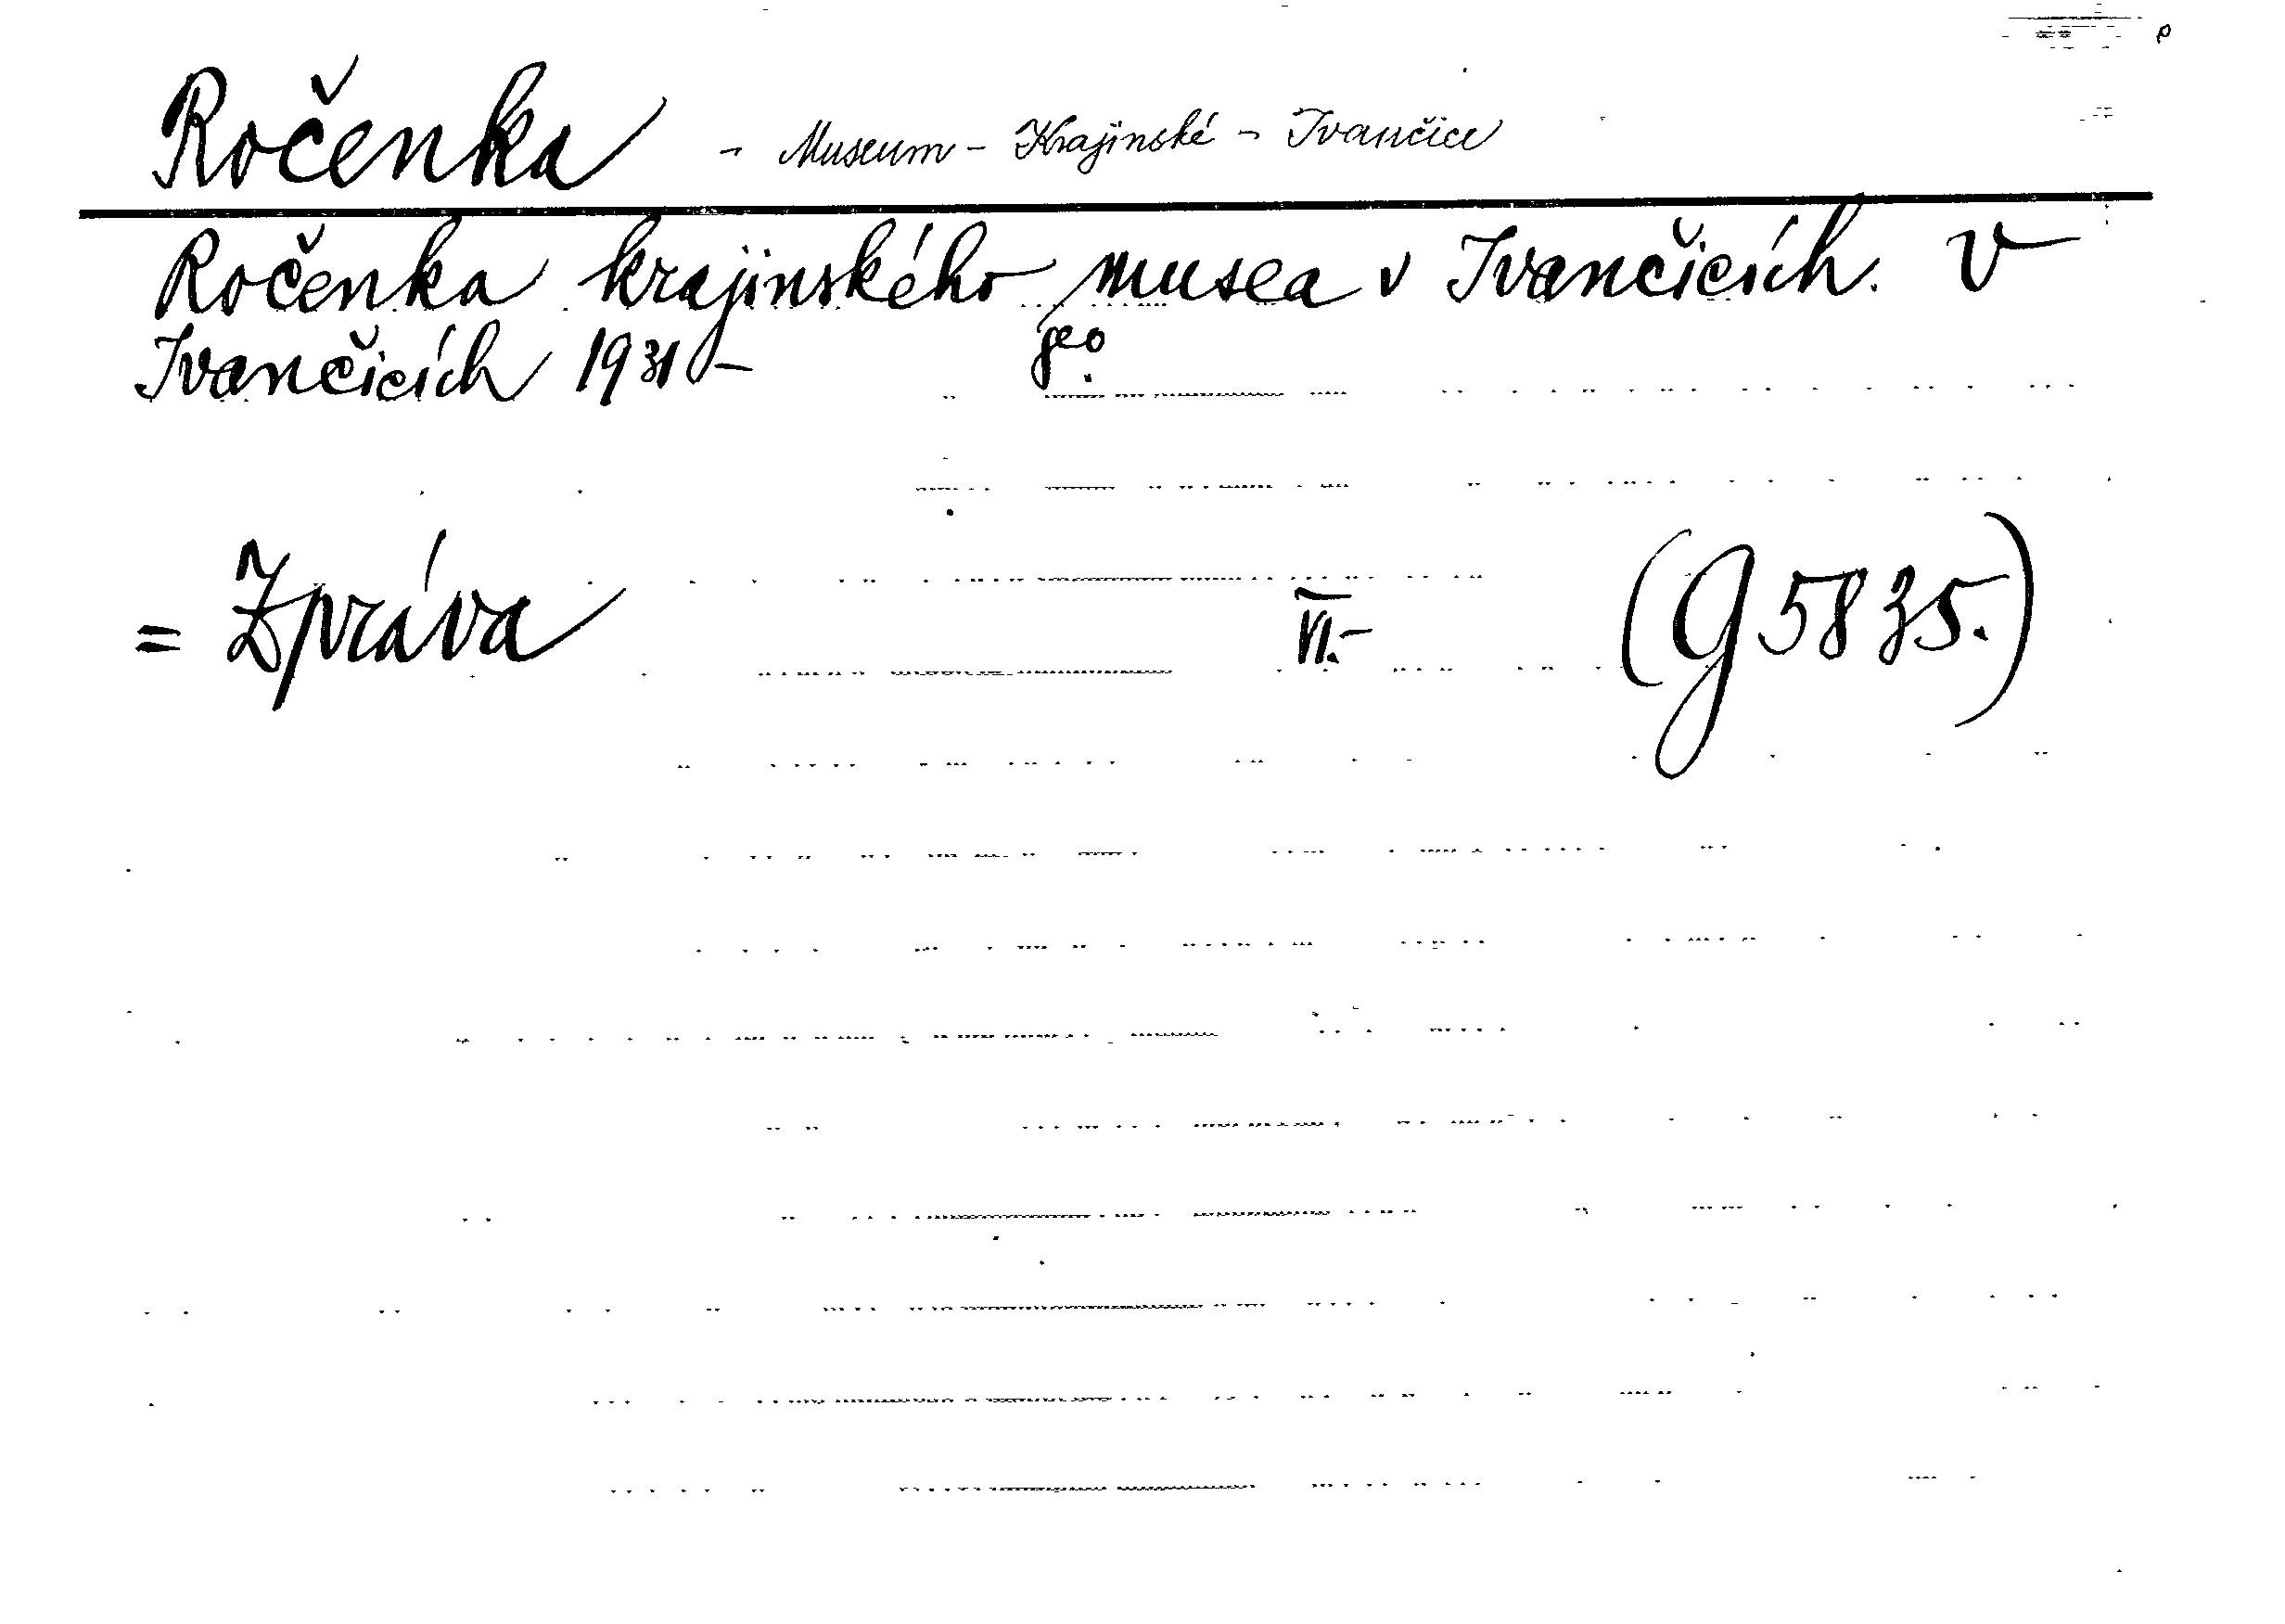 Ročenka - Museum - Krajinské - Ivančice
Ročenka krajinského musea v Ivančicích. V
Ivančicích 1931 - 8°.
= Zpráva VI.- (G 5835.)